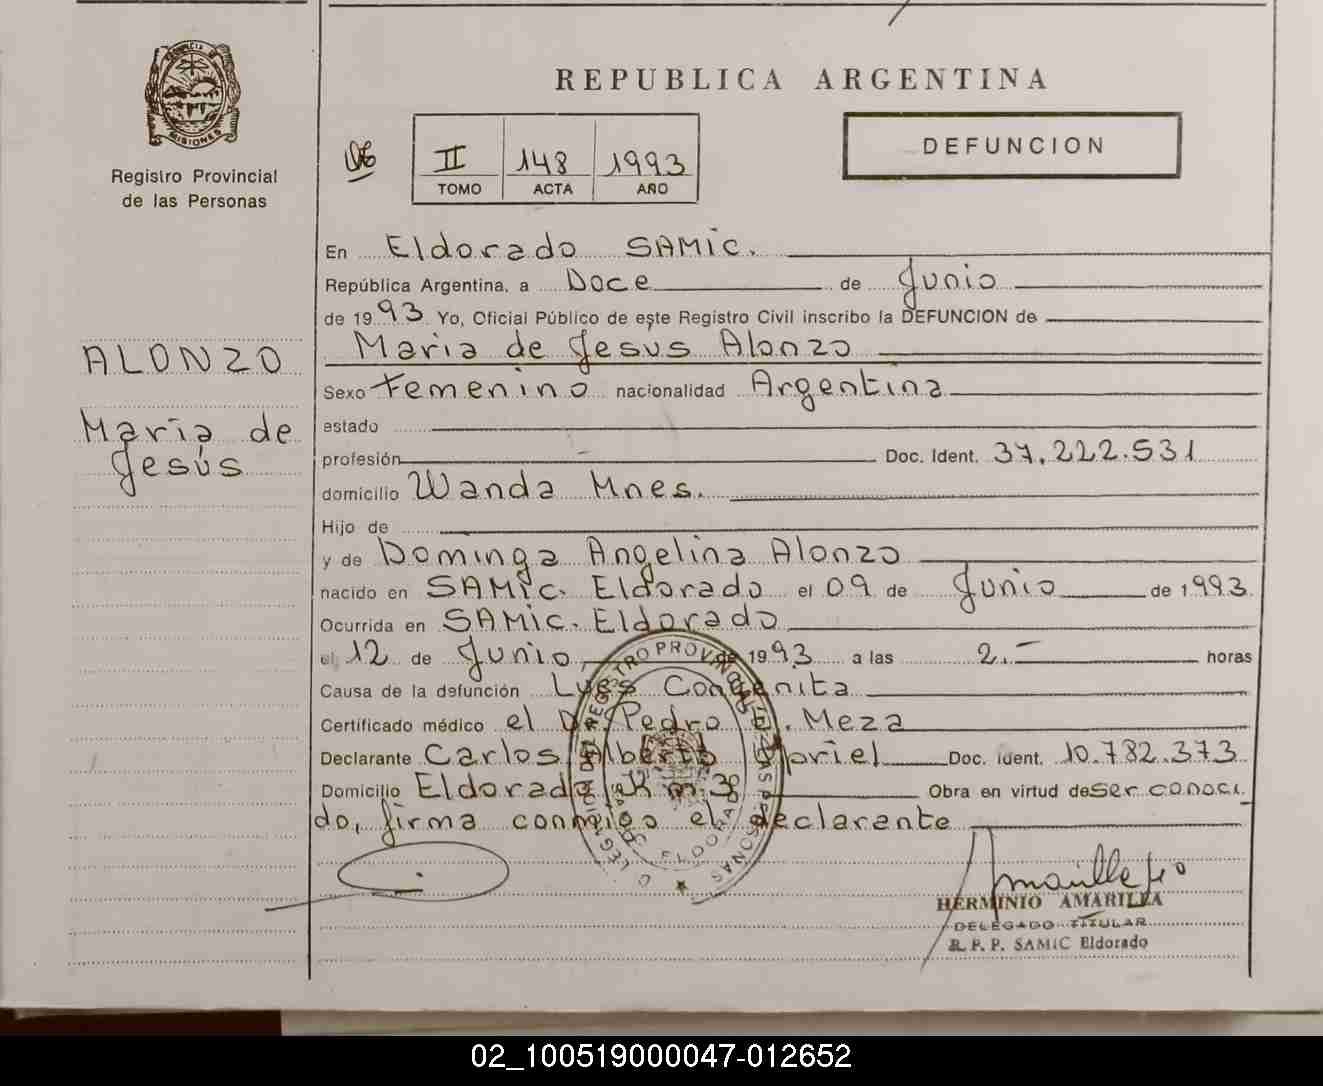 PROVINCIA DE
MISIONES
Registro Provincial
de las Personas
ALONZO
Maria de
Jesús
REPUBLICA ARGENTINA
II 148 1993
TOMO ACTA AÑO
DEFUNCION
En Eldorado SAMic.
República Argentina, a Doce de Junio
de 1993 Yo, Oficial Público de este Registro Civil inscribo la DEFUNCION de
Maria de Jesus Alonzo
Sexo Femenino nacionalidad Argentina
estado
profesión Doc. Ident. 37.222.531
domicilio Wanda Mnes.
Hijo de
y de Dominga Angelina Alonzo
nacido en SAMic. Eldorado el 09 de Junio de 1993
Ocurrida en SAMic. Eldorado
el 12 de Junio, de 1993 a las 2.- horas
Causa de la defunción Lues Congenita
Certificado médico el Dr. Pedro Meza
Declarante Carlos Alberto Doc. ident. 10.782.373
Domicilio Eldorado Km. 3 Obra en virtud de ser conoci
do, firma conmigo el declarante
HERMINIO AMARILLA
DELEGADO TITULAR
R. P. P. SAMIC Eldorado
02_100519000047-012652